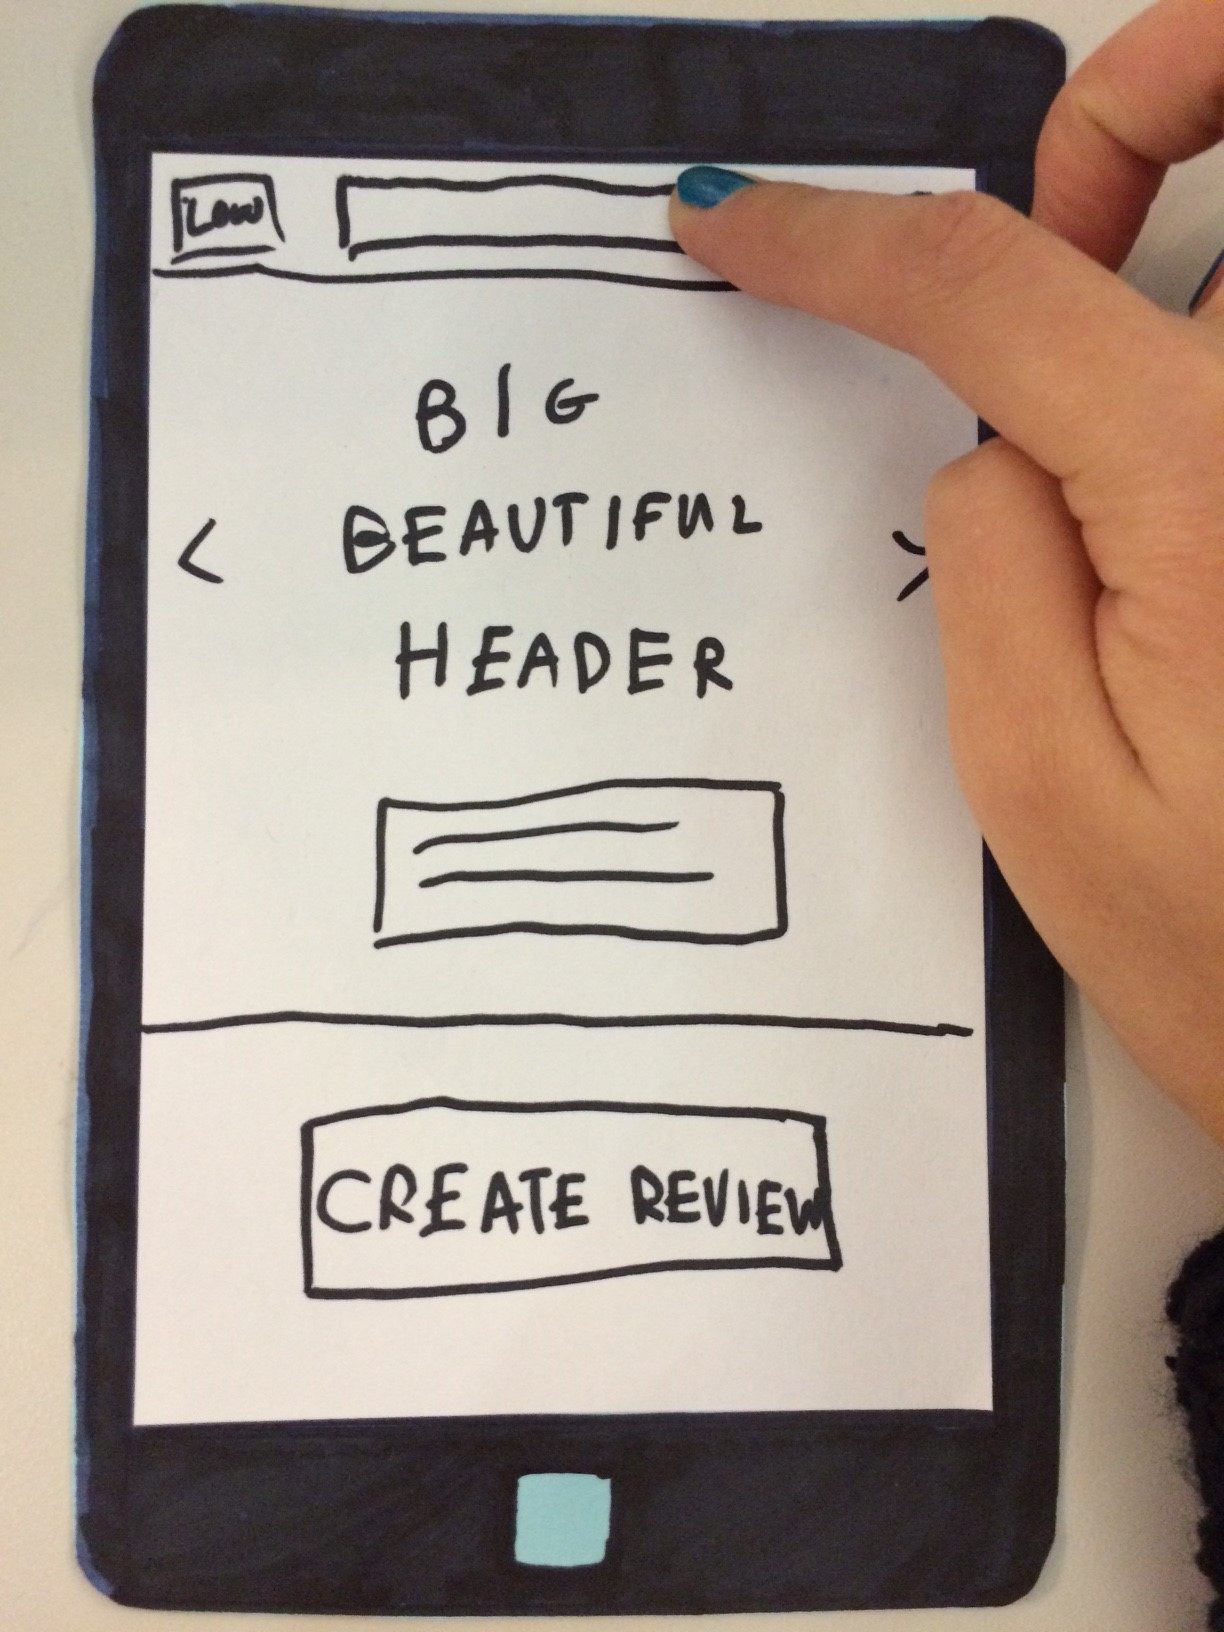 BIG
< BEAUTIFUL >
HEADER
CREATE REVIEW